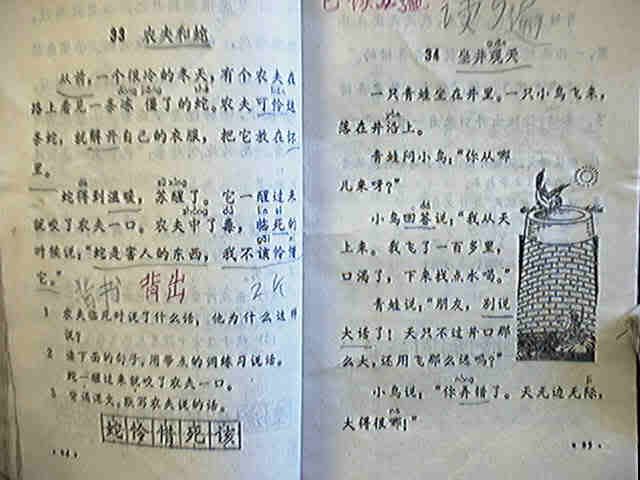 33 农夫和蛇
从前,一个很冷的冬天,有个农夫在
路上看见一条冻僵了的蛇。农夫可怜这
条蛇,就解开自己的衣服,把它放在怀
里。
蛇得到温暖,苏醒了。它一醒过来
就咬了农夫一口。农夫中了毒,临死的
时候说:“蛇是害人的东西,我不该怜惜
它。”
背书 背出
1 农夫临死时说了什么话,他为什么这样
说?
2 读下面的句子,用带点的词练习说话。
蛇一醒过来就咬了农夫一口。
3 背诵课文,默写农夫说的话。
蛇怜惜死该
读9遍
34 坐井观天
一只青蛙坐在井里。一只小鸟飞来,
落在井沿上。
青蛙问小鸟:“你从哪
儿来呀?”
小鸟回答说:“我从天
上来。我飞了一百多里,
口渴了,下来找点水喝。”
青蛙说:“朋友,别说
大话了!天只不过井口那
么大,还用飞那么远吗?”
小鸟说:“你弄错了。天无边无际,
大得很哪!”